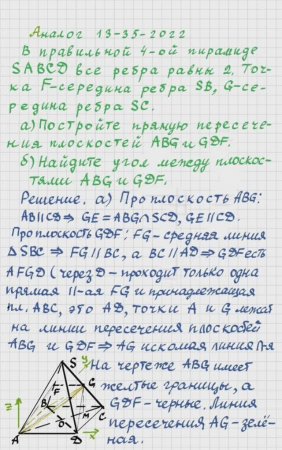 Аналог 13-35-2022
В правильной 4-ой пирамиде
SABCD все ребра равны 2. Точ-
ка F-середина ребра SB, G-се-
редина ребра SC.
а) Постройте прямую пересече-
ния плоскостей ABG и GDF.
б) Найдите угол между плоскос-
тями ABG и GDF.
Решение. а) Про плоскость ABG:
AB||CD ⇒ GE = ABG∩SCD, GE||CD.
Про плоскость GDF: FG-средняя линия
△SBC ⇒ FG||BC, а BC||AD ⇒ GDF есть
AFGD (через D-проходит только одна
прямая ||-ая FG и принадлежащая
пл. ABC, это AD, точки A и G лежат
на линии пересечения плоскостей
ABG и GDF ⇒ AG искомая линия п-я
На чертеже ABG имеет
желтые границы, а
GDF-черные. Линия
пересечения AG-зелё-
ная.
S
y
F
G
E
z
B
M
C
O
A
D
x